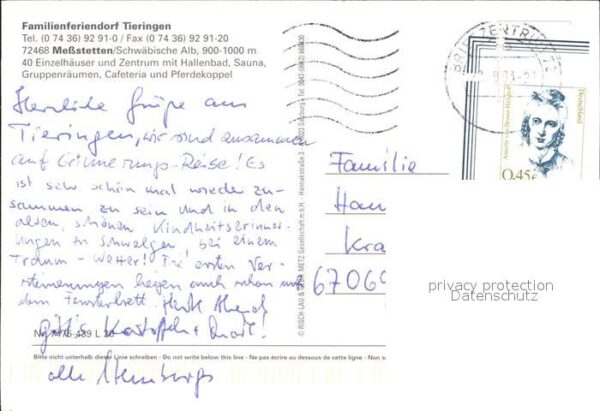 Familienferiendorf Tieringen
Tel. (0 74 36) 92 91-0 / Fax (0 74 36) 92 91-20
72468 Meßstetten/Schwäbische Alb, 900-1000 m
40 Einzelhäuser und Zentrum mit Hallenbad, Sauna,
Gruppenräumen, Cafeteria und Pferdekoppel
Herzliche Grüße aus
Tieringen, wir sind zusammen
auf Erinnerungs-Reise! Es
ist sehr schön mal wieder zu-
sammen zu sein und in den
alten, schönen Kindheitserinner-
ungen zu schwelgen, bei einem
Traum-Wetter! Die ersten Ver-
steinerungen liegen auch schon auf
dem Fensterbrett. Heute Abend
gibt's Kartoffeln + Quark!
Nr. 7475-439 L 20
Bitte nicht unterhalb dieser Linie schreiben - Do not write below this line - Ne pas écrire au dessous de cette ligne - Non s
alle
© RISCH-LAU &
METZ Gesellschaft m.b.H.
BRIEFZENTRUM
Deutschland
Annette von Droste-Hülshoff
0,45€
Familie
Han
Kra
6706
privacy protection
Datenschutz